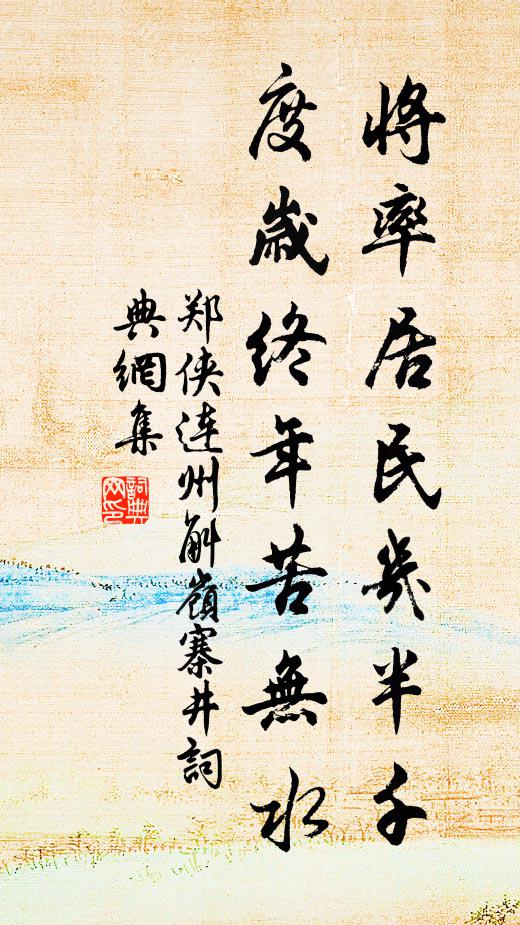 將率居民幾半千
度歲終年苦無水
郑侠连州斛嶺寨井詞
典網集
詞典
网印